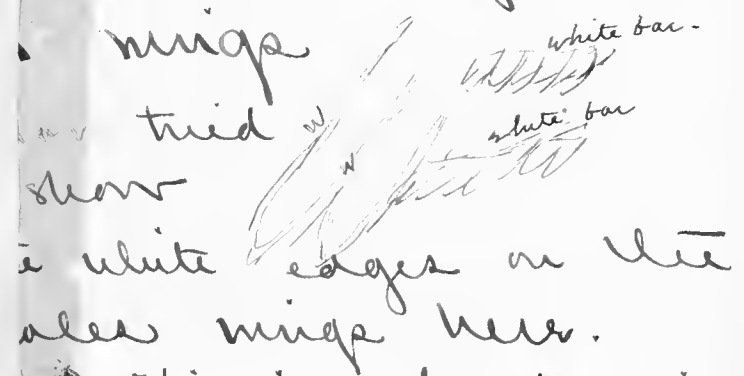 wings
white bar.
tried w
white bar
w
show
white edges on the
wings here.